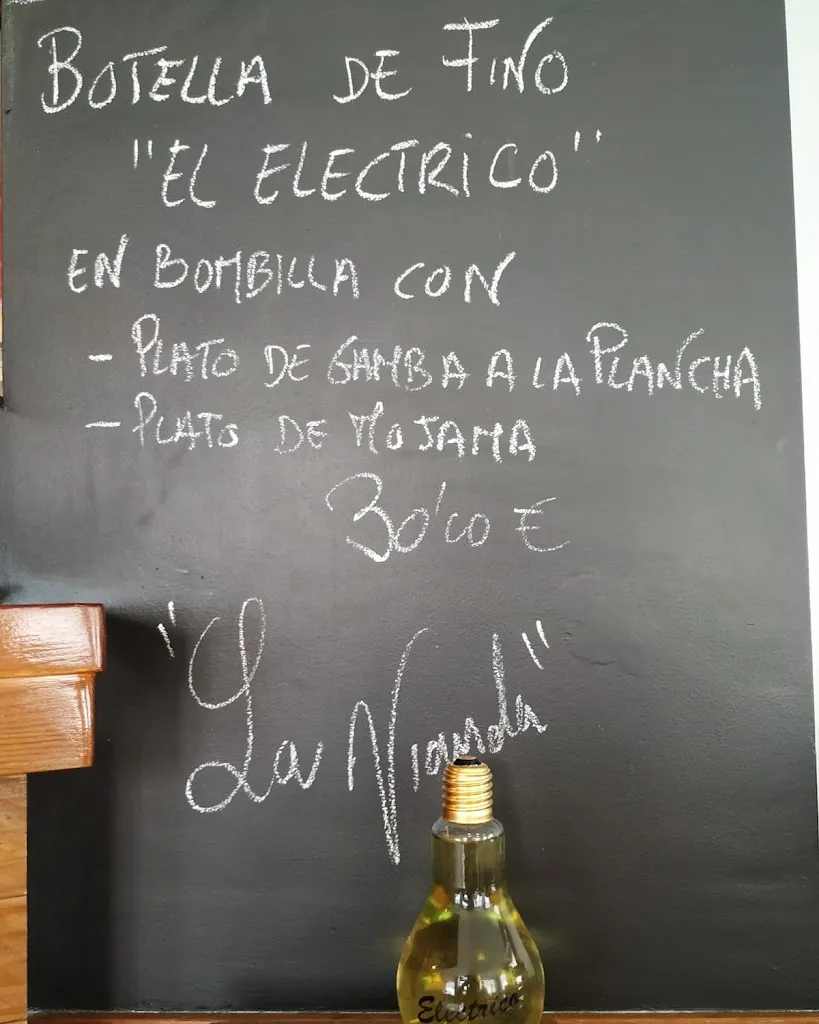 BOTELLA DE FINO
"EL ELECTRICO"
EN BOMBILLA CON
- PLATO DE GAMBA A LA PLANCHA
- PLATO DE MOJAMA
30'00 €
"La Vianda"
Electrico